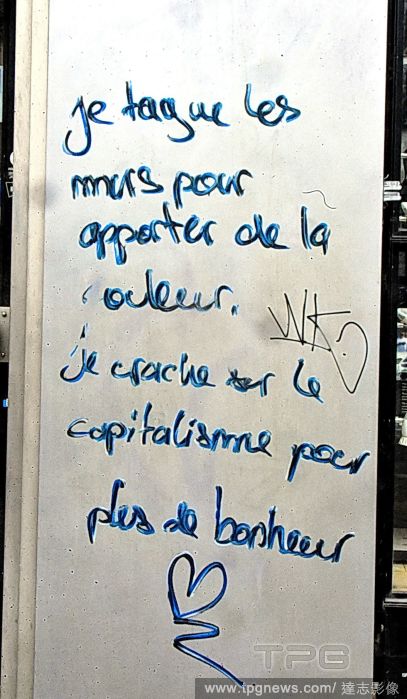 je tague les
murs pour
apporter de la
couleur.
je crache sur le
capitalisme pour
plus de bonheur
TPG
www.tpgnews.com/ 達志影像